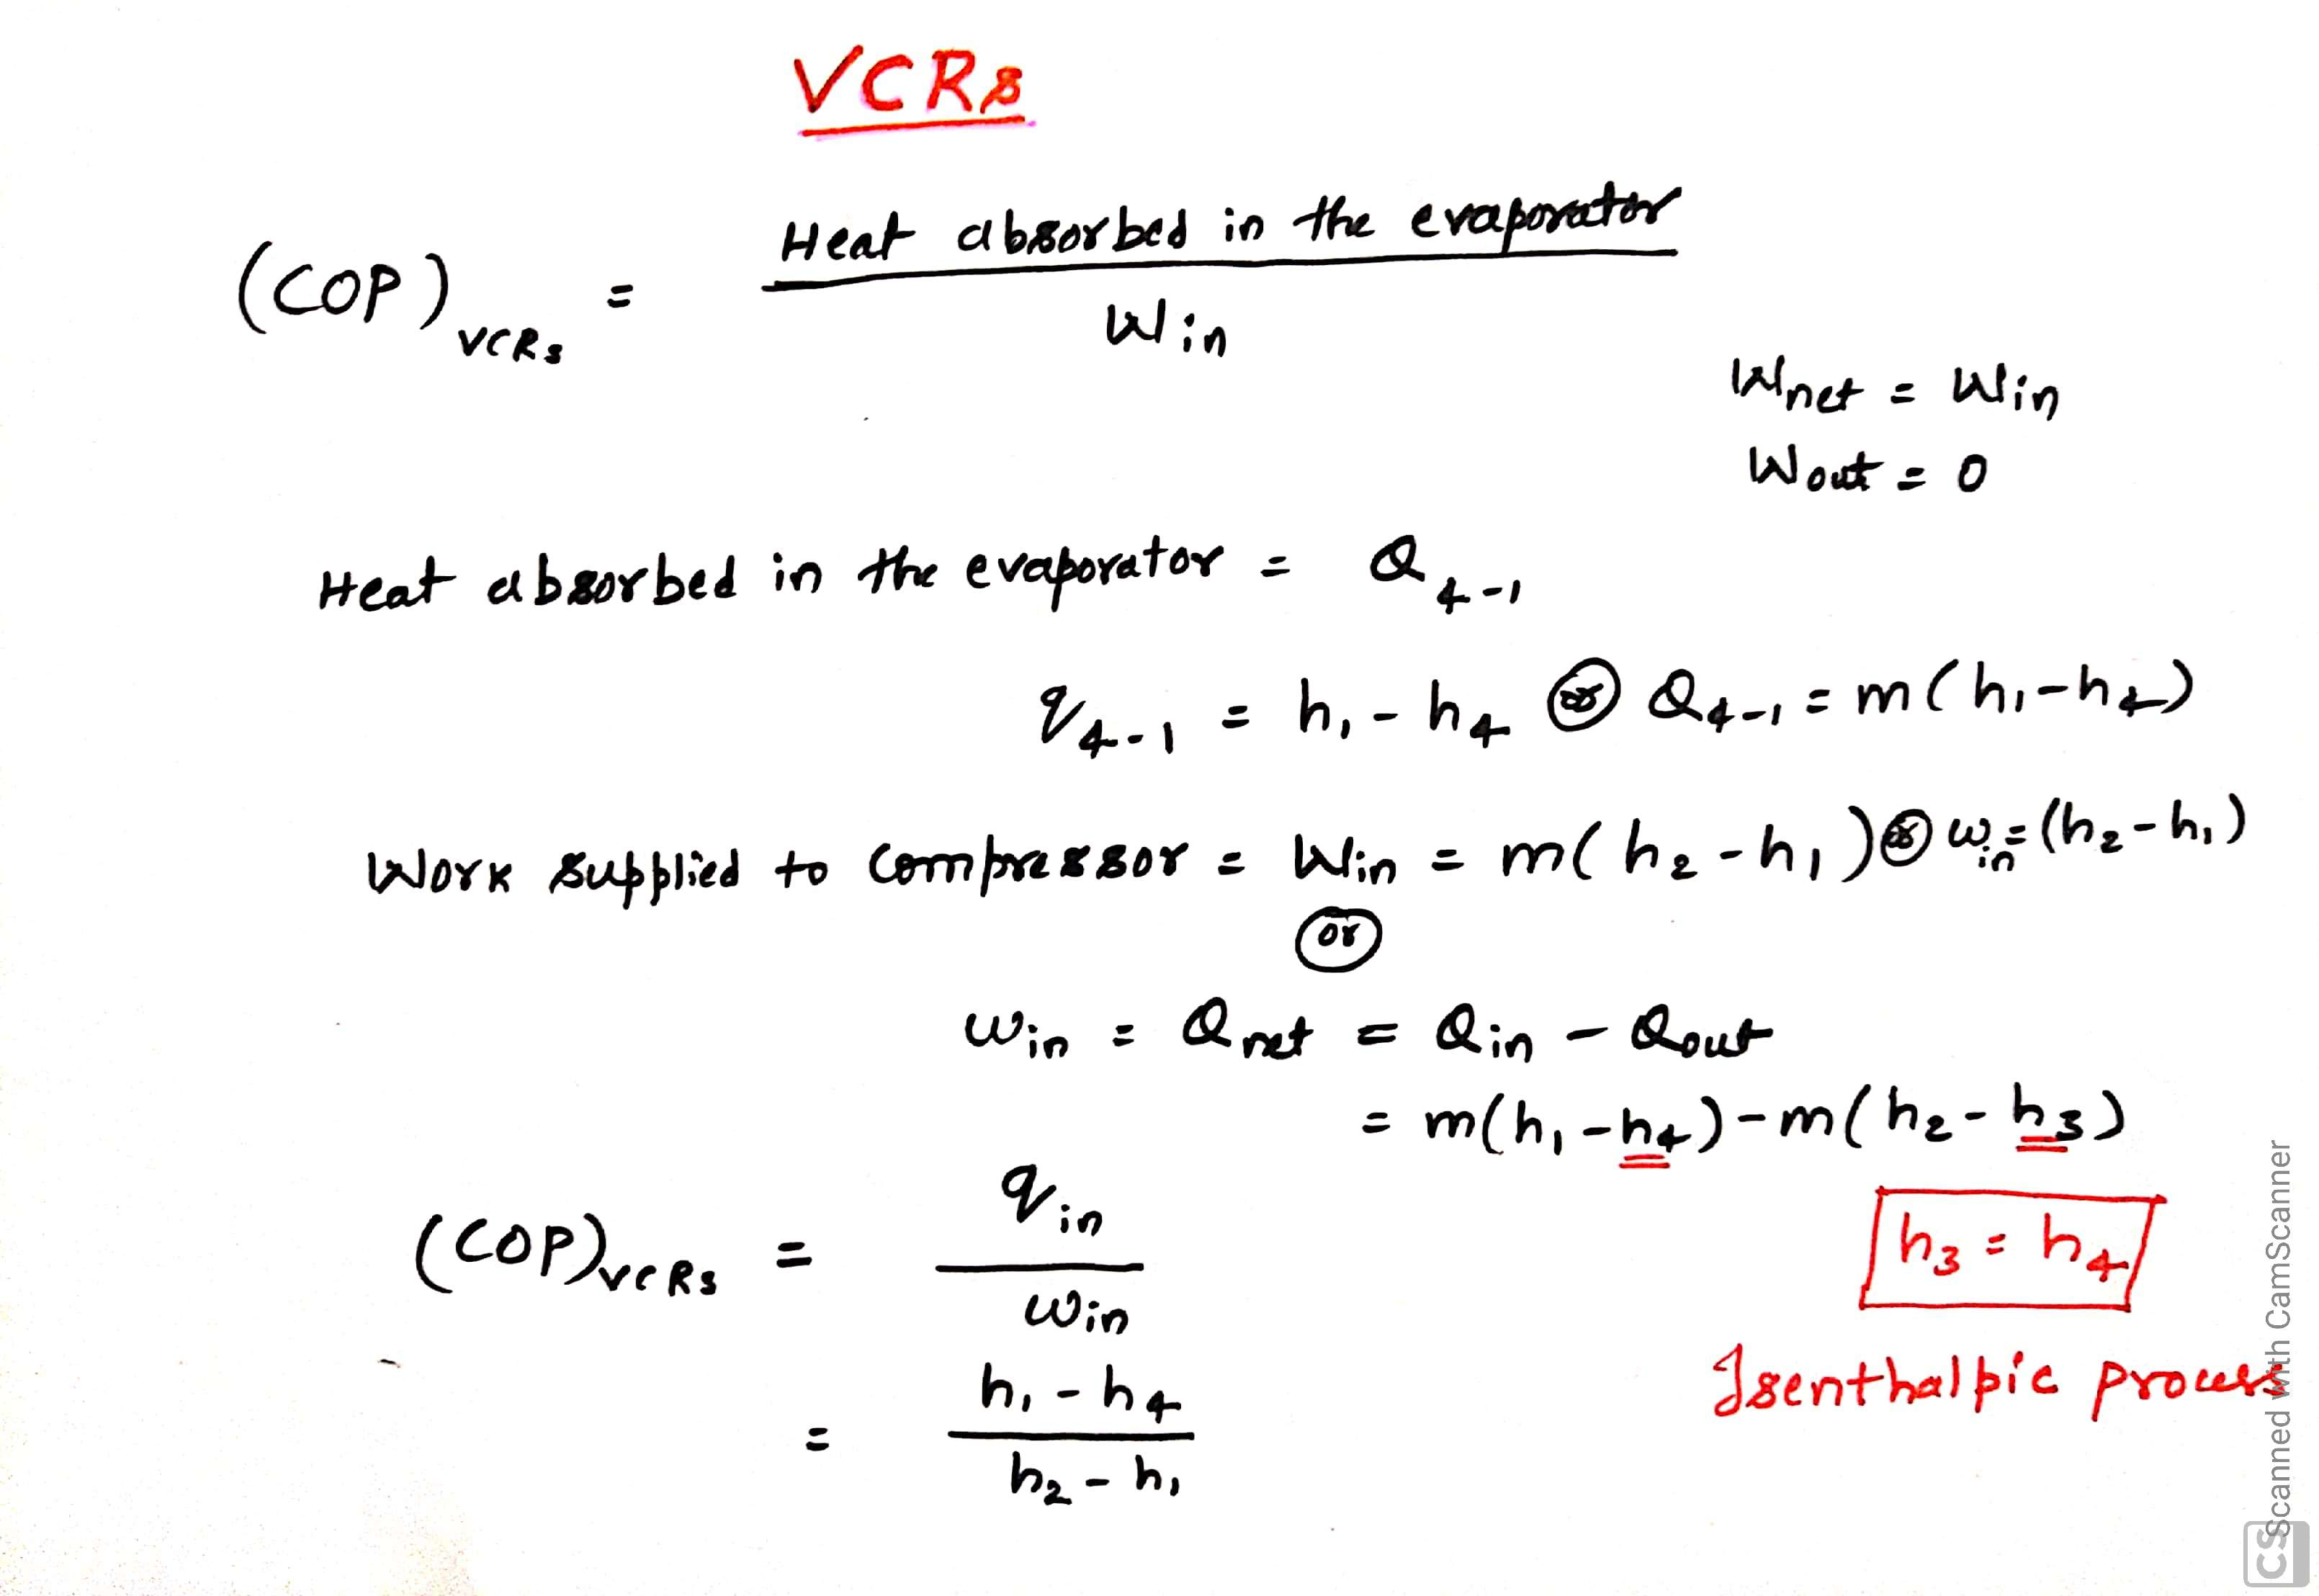 VCRs
Heat absorbed in the evaporator
(COP)VCRs =
Win
Wnet = Win
Wout = 0
Heat absorbed in the evaporator = Q4-1
q4-1 = h1 - h4 or Q4-1 = m(h1-h4)
Work supplied to compressor = Win = m(h2-h1) or win = (h2-h1)
or
Win = Qnet = Qin - Qout
= m(h1-h4)-m(h2-h3)
(COP)VCRs = qin
Win
h3 = h4
Isenthalpic process
= h1-h4
h2-h1
Scanned with CamScanner
CS